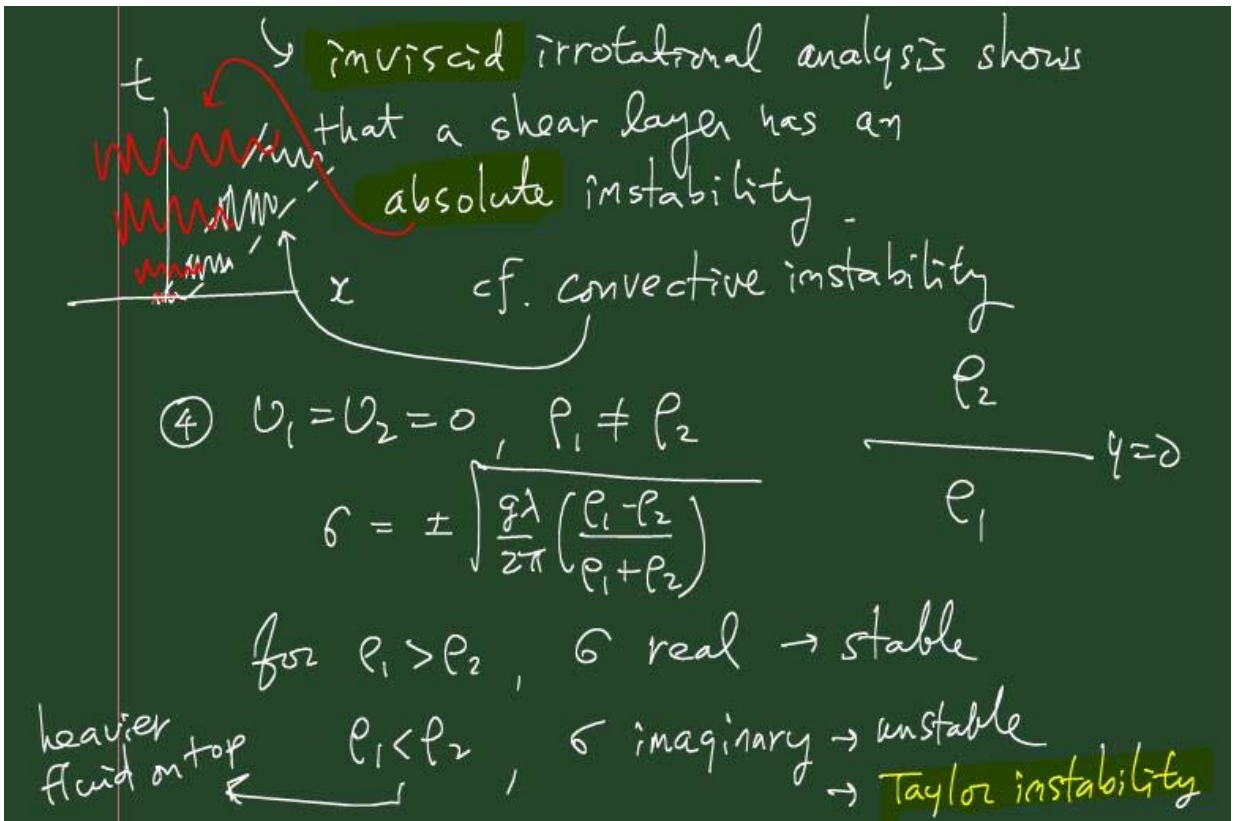 ↳ inviscid irrotational analysis shows
t
that a shear layer has an
absolute instability.
x
cf. convective instability
④ U₁ = U₂ = 0, ρ₁ ≠ ρ₂
ρ₂
y=0
ρ₁
σ = ± √(gλ/2π ((ρ₁-ρ₂)/(ρ₁+ρ₂)))
for ρ₁ > ρ₂, σ real → stable
heavier fluid on top
ρ₁ < ρ₂, σ imaginary → unstable
→ Taylor instability